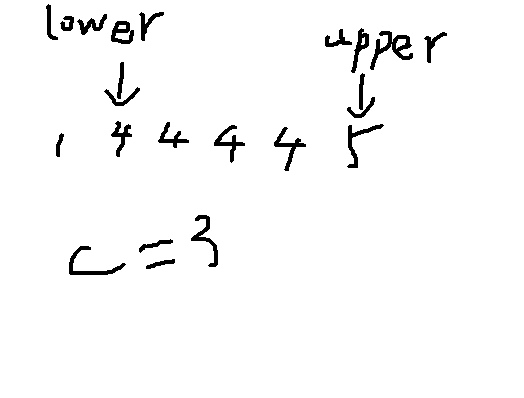 lower
upper
1 4 4 4 4 5
c=3